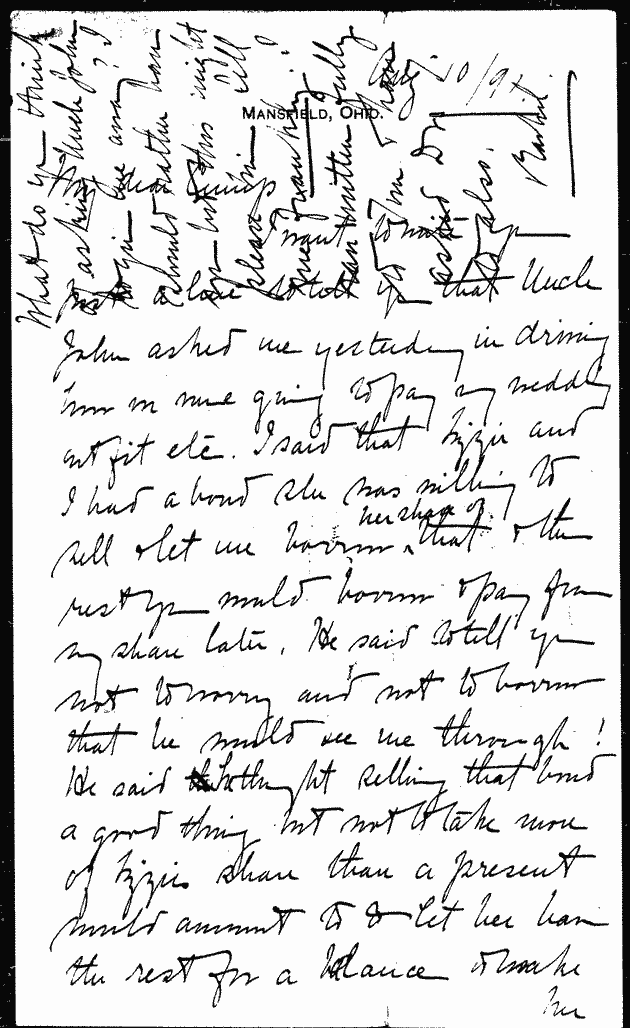 Aug. 10/91
MANSFIELD, OHIO.
My dear Cump
I want to write you
just a line to tell you that Uncle
John asked me yesterday in driving
how we were going to pay my wedding
outfit etc. I said that Lizzie and
I had a bond she was willing to
sell & let me borrow her share of that & the
rest you would borrow & pay from
my share later. He said to tell you
not to worry and not to borrow
that he would see me through!
He said he thought selling that bond
a good thing but not to take more
of Lizzie's share than a present
would amount to & let her have
the rest for a balance & make
her
What do you think
as Uncle John
to give me away? I
should rather have
you but this might
please him
asked Dr.
also.
Rachel.